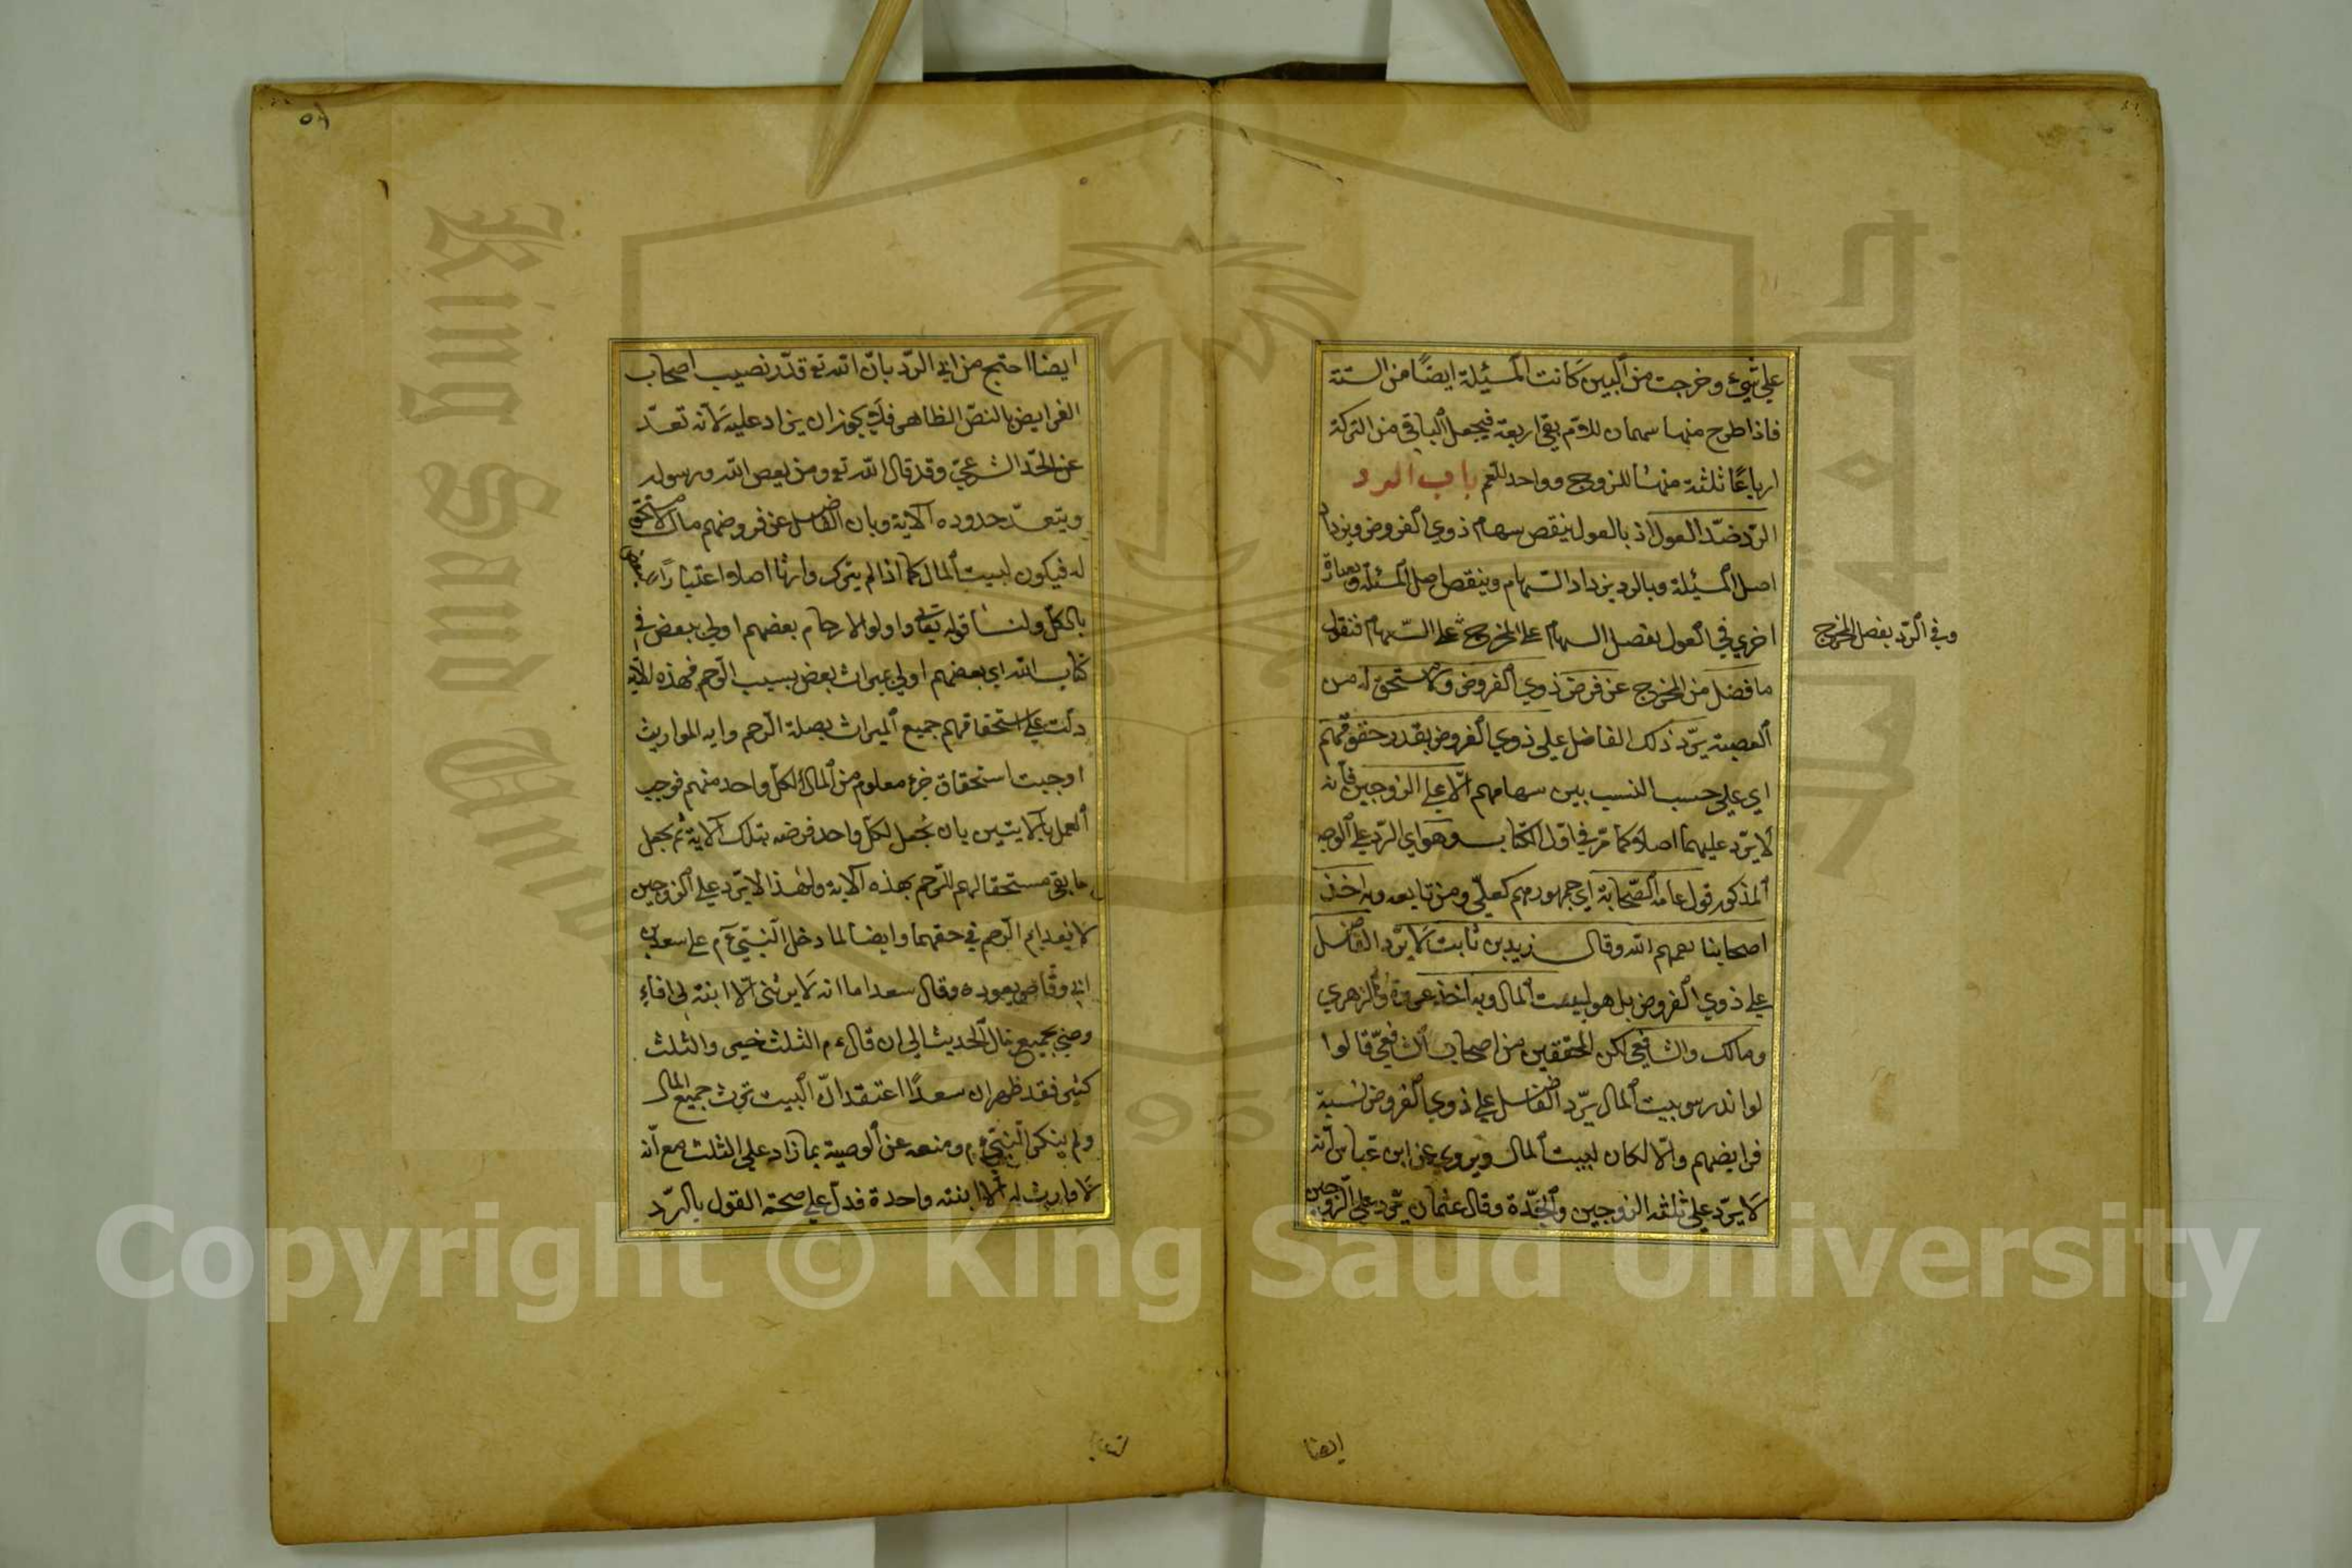 على شيء وخرجت من البين كانت المسئلة ايضًا من الستة
فاذا طرح منها سهمان للام بقي اربعة فيجعل الباقي من التركة
ارباعًا ثلثة منها للزوج وواحد للعم باب الرد
الرد ضدّ العول اذ بالعول ينقص سهام ذوي الفروض ويزداد
اصل المسئلة وبالرد يزداد السهام وينقص اصل المسئلة وبعبارة
اخرى في العول يفضل السهام على المخرج على السهام فنقول
وفي الرد يفضل المخرج
ما فضل من المخرج عن فرض ذوي الفروض ولا مستحق له من
العصبة يردّ ذلك الفاضل على ذوي الفروض بقدر حقوقهم
اي على حسب النسب بين سهامهم الّا على الزوجين فانه
لا يردّ عليهما اصلا كما مرّ في اول الكتاب وهو اي الرد على الوجه
المذكور قول عامة الصحابة اي جمهورهم كعليّ ومن تابعه وبه اخذ
اصحابنا رحمهم الله وقال زيد بن ثابت لا يردّ الفاضل
على ذوي الفروض بل هو لبيت المال وبه اخذ عروة والزهري
ومالك والشافعي لكن المحققين من اصحاب الشافعيّ قالوا
لو اندرس بيت المال يردّ الفاضل على ذوي الفروض نسبة
فرايضهم والّا لكان لبيت المال ويروى عن ابن عباس انه
لا يردّ على ثلثة الزوجين والجدّة وقال عثمان يردّ على الزوجين
ايضا
٥٨
ايضا احتج من ابى الردّ بانّ الله تع قدّر نصيب اصحاب
الفرايض بالنصّ الظاهر فلا يجوز ان يزاد عليه لانه تعدّ
عن الحدّ الشرعيّ وقد قال الله تع ومن يعص الله ورسوله
ويتعدّ حدوده الآية وبان الفاضل عن فروضهم مال لا مستحق
له فيكون لبيت المال كما اذا لم يترك وارثا اصلا اعتبارًا للبعض
بالكلّ ولنا قوله تعالى واولو الارحام بعضهم اولى ببعض في
كتاب الله اي بعضهم اولى بميراث بعض بسبب الرحم فهذه الآية
دلت على استحقاقهم جميع الميراث بصلة الرحم واية المواريث
اوجبت استحقاق جزء معلوم من المال لكلّ واحد منهم فوجب
العمل بالآيتين بان نجعل لكلّ واحد فرضه بتلك الاية ثم نجعل
ما بقي مستحقا لهم للرحم بهذه الآية ولهذا لا يردّ على الزوجين
لانعدام الرحم في حقهما وايضا لما دخل النبيّ عم على سعد بن
ابي وقاص يعوده وقال سعد اما انه لا يرثني الّا ابنة لي افا
وصي بجميع مال الحديث الى ان قال عم الثلث خير والثلث
كثير فقد ظهر ان سعدًا اعتقد انّ البنت ترث جميع المال
ولم ينكر النبيّ عم ومنعه عن الوصية بما زاد على الثلث مع انه
لا وارث له الّا ابنته واحدة فدلّ على صحة القول بالردّ
Copyright © King Saud University